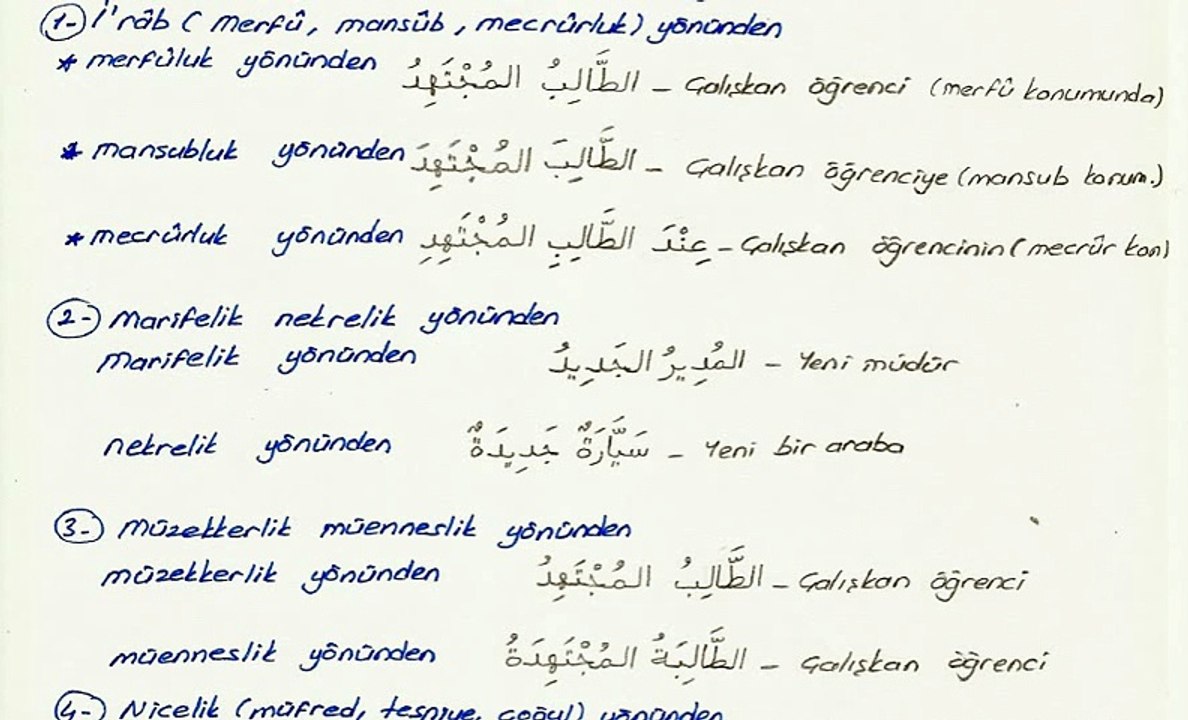 1-) İ'râb ( merfû, mansûb, mecrûrluk) yönünden
* merfûluk yönünden الطَّالِبُ المُجْتَهِدُ – Çalışkan öğrenci (merfû konumunda)
* mansubluk yönünden الطَّالِبَ المُجْتَهِدَ – Çalışkan öğrenciye (mansub konum.)
* mecrûrluk yönünden عِنْدَ الطَّالِبِ المُجْتَهِدِ – Çalışkan öğrencinin (mecrûr kon)
2-) Marifelik nekrelik yönünden
marifelik yönünden المُدِيرُ الجَدِيدُ – Yeni müdür
nekrelik yönünden سَيَّارَةٌ جَدِيدَةٌ – Yeni bir araba
3-) Müzekkerlik müenneslik yönünden
müzekkerlik yönünden الطَّالِبُ المُجْتَهِدُ – Çalışkan öğrenci
müenneslik yönünden الطَّالِبَةُ المُجْتَهِدَةُ – Çalışkan öğrenci
4-) Nicelik (müfred, tesniye, çoğul) yönünden